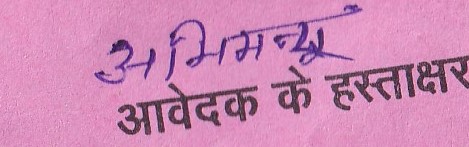 अभिमन्यू
आवेदक के हस्ताक्षर